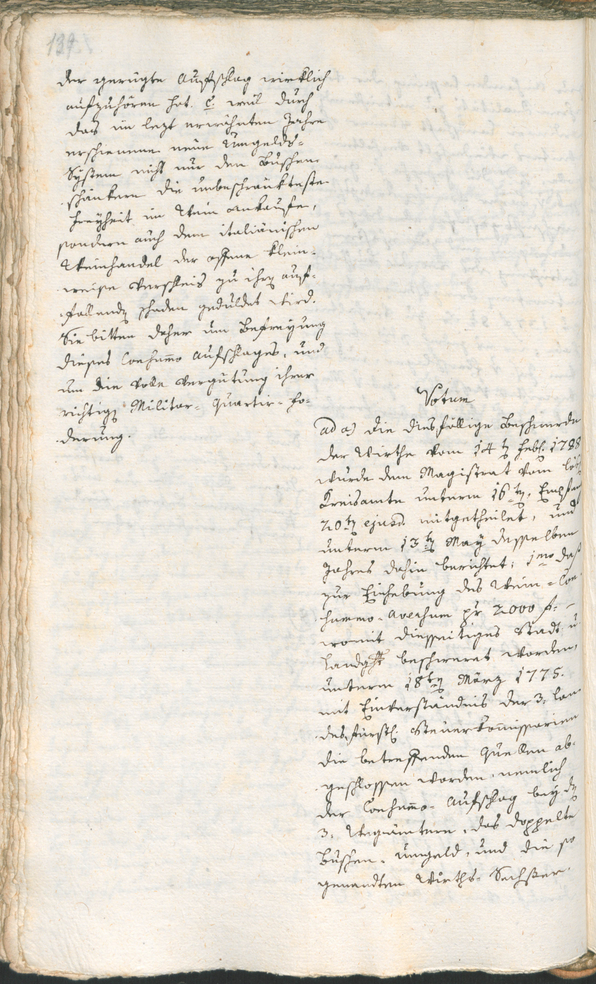 139.
der gerügte Aufschlag wirklich
aufzuhören hat. c weil durch
das im lezt erwähnten Jahre
erschienene neüe Umgelds-
System nicht nur den Buschen-
schänkern die unbeschränkteste
Freyheit im Wein ankaufe,
sondern auch dem italiänischen
Weinhandel der offene klein-
weise Verschleis zu ihrem auf-
fallenden schaden geduldet wird.
Sie bitten daher um Befreyung
dieses Consummo Aufschlages, und
um die Vergütung ihrer
richtigen Militar-Quartir-Fo-
derung.
Votum
ad a) die diesfällige Beschwerde
der Wirthe vom 14ten Febr. 1788
wurde dem Magistrat vom löb.
Kreisamte unterm 16ten, Empfang
20ten ejusd. mitgetheilet, und
unterm 13ten May desselben
Jahres dahin berichtet: 1mo daß
zur Einhebung des Wein-Con-
summo-Aversum pr. 2000 f. –
womit diesseitiges Stadt u
Landght beschwerat worden,
unterm 18ten März 1775.
mit Einverständnis der 3. lan-
desfürstl. Steuerkommissarien
die betreffenden Quellen ab-
geschlossen worden, nemlich
der Consummo-Aufschlag bey den
3. Wegämtern, das doppelte
Buschen-Umgeld, und die so
genandten Wirths-Sechser.